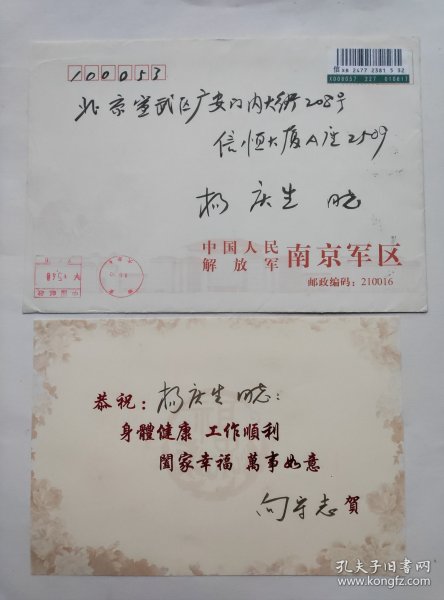 100053
信 XB 2477 2381 5 32
北京宣武区广安门内大街208号
信恒大厦A座2509
杨庆生 同志
中国人民
解放军 南京军区
邮政编码：210016
恭祝：杨庆生 同志：
身體健康 工作順利
闔家幸福 萬事如意
向守志賀
孔夫子旧书网
www.kongfz.com